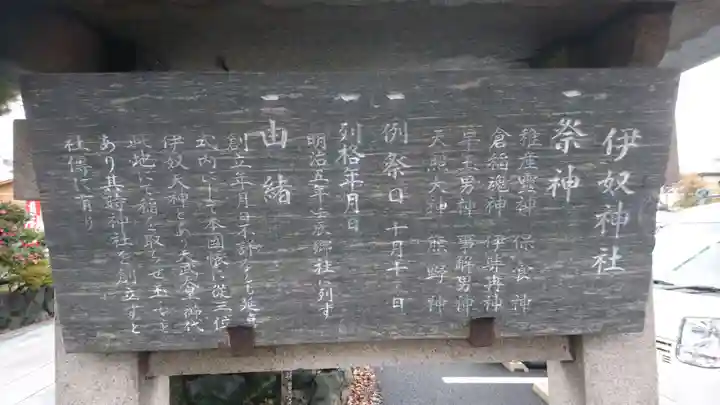 伊奴神社
一祭神
稚産霊神 保食神
倉稲魂神 伊弉冉神
早玉男神 事解男神
天照大神 熊野神
一例祭日 十月十 日
一列格年月日
明治五年壬辰郷社ニ列す
一由緒
創立年月日不詳なるも延喜
式内にして本国帳に従三位
伊奴天神とあり天武天皇御代
此地にて稲を取らせ玉
あり其時神社を創立すと
社傳に有り